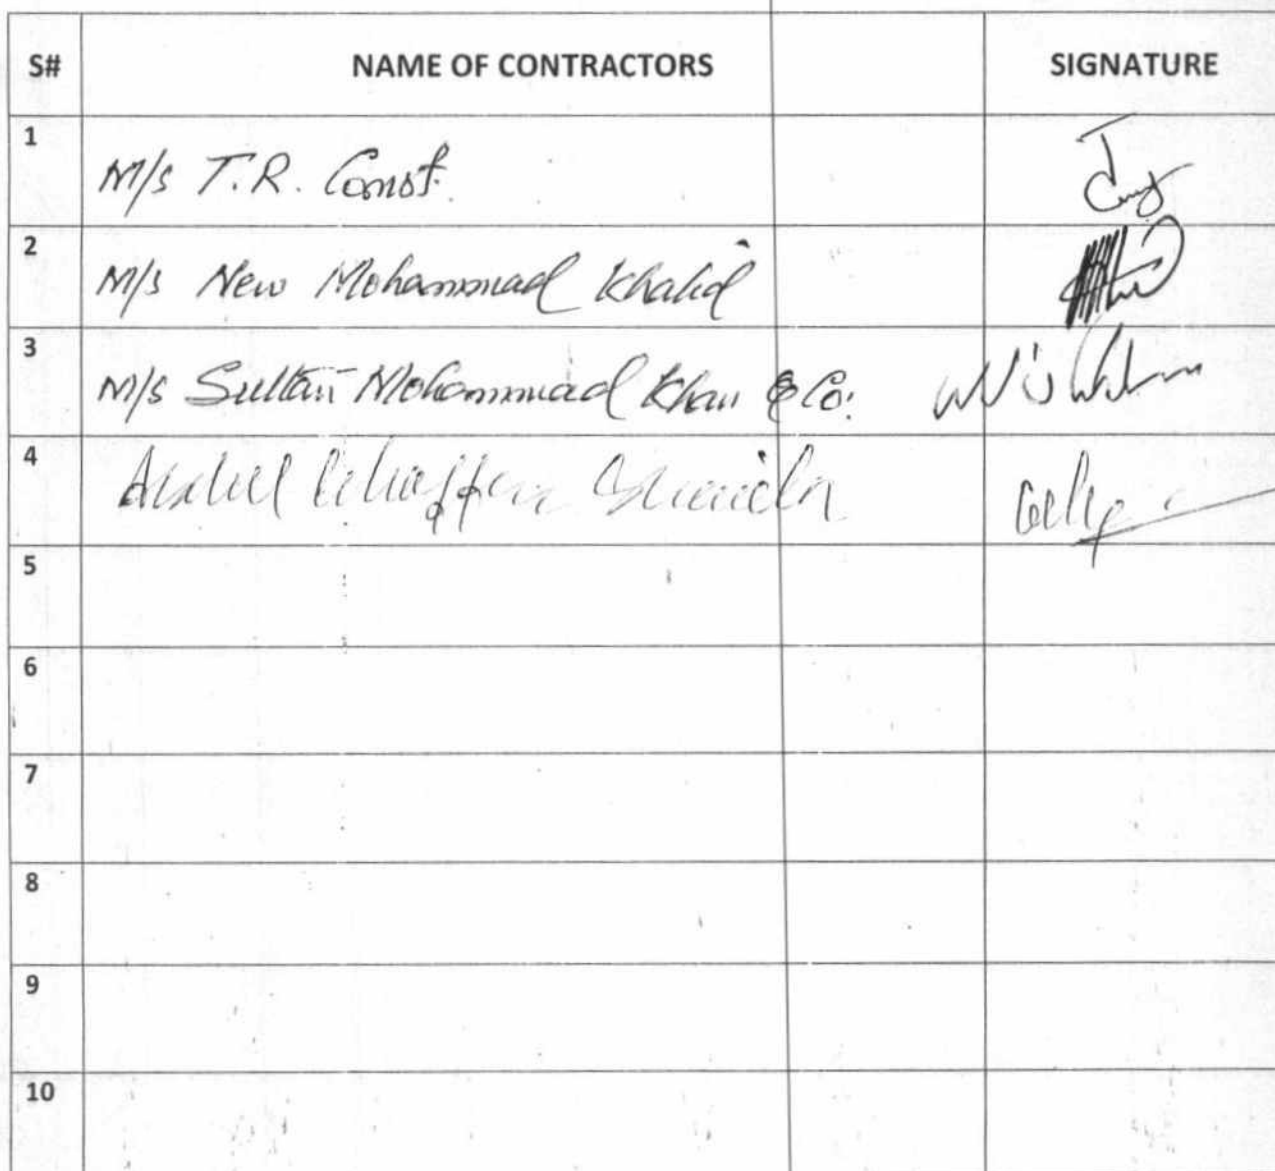 S# NAME OF CONTRACTORS SIGNATURE
1 M/s T.R. Const.
2 M/s New Mohammad Khalid
3 M/s Sultan Mohammad Khan & Co.
4 Abdul
5
6
7
8
9
10